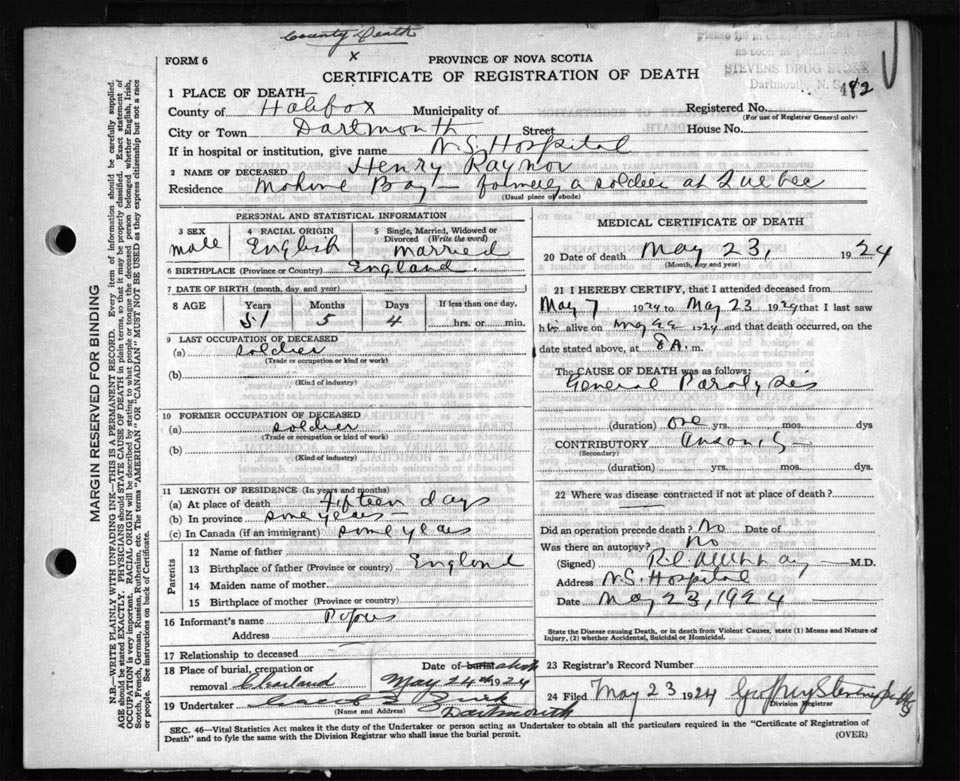 County Death
Please fill in
as soon as possible to
STEVENS DRUG STORE
Dartmouth, N. S.
482
FORM 6
x
PROVINCE OF NOVA SCOTIA
CERTIFICATE OF REGISTRATION OF DEATH
1 PLACE OF DEATH—
County of Halifax Municipality of Registered No.
(For use of Registrar General only)
City or Town Dartmouth Street House No.
If in hospital or institution, give name N.S. Hospital
2 NAME OF DECEASED Henry Raynor
Residence Mahone Bay — formerly a soldier at Quebec
(Usual place of abode)
PERSONAL AND STATISTICAL INFORMATION
3 SEX 4 RACIAL ORIGIN 5 Single, Married, Widowed or Divorced (Write the word)
male English married
6 BIRTHPLACE (Province or Country) England.
7 DATE OF BIRTH (month, day, and year)
8 AGE Years Months Days If less than one day,
51 5 4 hrs. or min.
9 LAST OCCUPATION OF DECEASED
(a) soldier
(Trade or occupation or kind or work)
(b)
(Kind of industry)
10 FORMER OCCUPATION OF DECEASED
(a) soldier
(Trade or occupation or kind or work)
(b)
(Kind of industry)
11 LENGTH OF RESIDENCE (In years and months)
(a) At place of death Fifteen days
(b) In province some years —
(c) In Canada (if an immigrant) some years
Parents
12 Name of father
13 Birthplace of father (Province or country) England
14 Maiden name of mother
15 Birthplace of mother (Province or country)
16 Informant's name Papers
Address
17 Relationship to deceased
18 Place of burial, cremation or Date of burial
removal May 24th 1924
19 Undertaker
(Name and Address) Dartmouth
MEDICAL CERTIFICATE OF DEATH
20 Date of death May 23, 1924
(Month, day and year)
21 I HEREBY CERTIFY, that I attended deceased from
May 7 1924 to May 23 1924 that I last saw
him alive on May 22 1924 and that death occurred, on the
date stated above, at 8 A. m.
The CAUSE OF DEATH was as follows:
General Paralysis
(duration) one yrs. mos. dys
CONTRIBUTORY
(Secondary)
(duration) yrs. mos. dys.
22 Where was disease contracted if not at place of death?
Did an operation precede death? No Date of
Was there an autopsy? No
(Signed) M.D.
Address N.S. Hospital
Date May 23, 1924
State the Disease causing Death, or in death from Violent Causes, state (1) Means and Nature of
Injury, (2) whether Accidental, Suicidal or Homicidal.
23 Registrar's Record Number
24 Filed May 23 1924 Geoffrey Stevens
Division Registrar
SEC. 46—Vital Statistics Act makes it the duty of the Undertaker or person acting as Undertaker to obtain all the particulars required in the "Certificate of Registration of
Death" and to fyle the same with the Division Registrar who shall issue the burial permit. (OVER)
MARGIN RESERVED FOR BINDING
N.B.—WRITE PLAINLY, WITH UNFADING INK—THIS IS A PERMANENT RECORD. Every item of information should be carefully supplied.
AGE should be stated EXACTLY. PHYSICIANS should STATE CAUSE OF DEATH in plain terms, so that it may be properly classified. Exact statement of
OCCUPATION is very important. RACIAL ORIGIN will be described by stating to what people or tongue the deceased person belonged whether English, Irish,
Scotch, French, German, Russian, Ruthenian, etc. The terms "AMERICAN" OR "CANADIAN" MUST NOT BE USED as they express citizenship but not a race
or people. See instructions on back of Certificate.